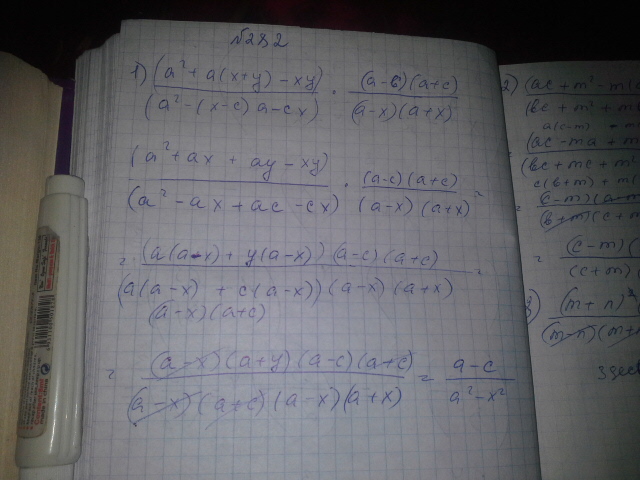 №282
1) (a² + a(x+y) - xy) / (a² - (x-c) a - cx) · (a-c)(a+c) / (a-x)(a+x)
(a² + ax + ay - xy) / (a² - ax + ac - cx) · (a-c)(a+c) / (a-x)(a+x) =
= (a(a-x) + y(a-x))(a-c)(a+c) / (a(a-x) + c(a-x))(a-x)(a+x) =
(a-x)(a+c)
= (a-x)(a+y)(a-c)(a+c) / (a-x)(a+c)(a-x)(a+x) = a-c / a²-x²
2) (ac + m² - m(c
(bc + m² + m
a(c-m) + m
(ac - ma + m
(bc + mc + m
c(b+m) + m(
= (c-m)(a-m
(b+m)(c+m
= (c-m)(
(c+m)
3) (m+n)²
(m-n)(m+n